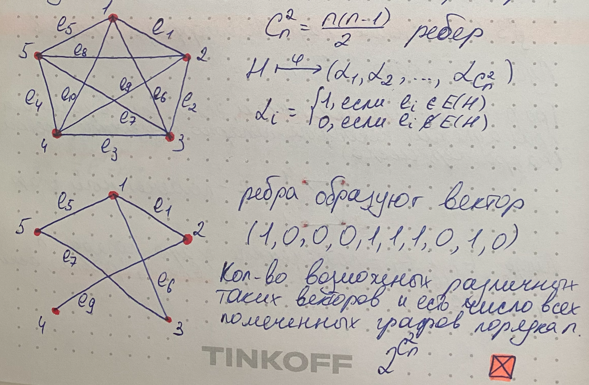 1
e₅ e₁
5 e₈ 2
e₄ e₉ e₆ e₂
e₇
4 e₃ 3
Cₙ² = n(n-1)/2 ребер
H ⟼φ (α₁, α₂, ..., α_Cₙ²)
αᵢ = {1, если eᵢ ∈ E(H)
0, если eᵢ ∉ E(H)
1
e₅ e₁
5 2
e₇ e₆
e₉
4 3
ребра образуют вектор
(1,0,0,0,1,1,1,0,1,0)
Кол-во возможных различных
таких векторов и есть число всех
помеченных графов порядка n.
2^Cₙ²
TINKOFF